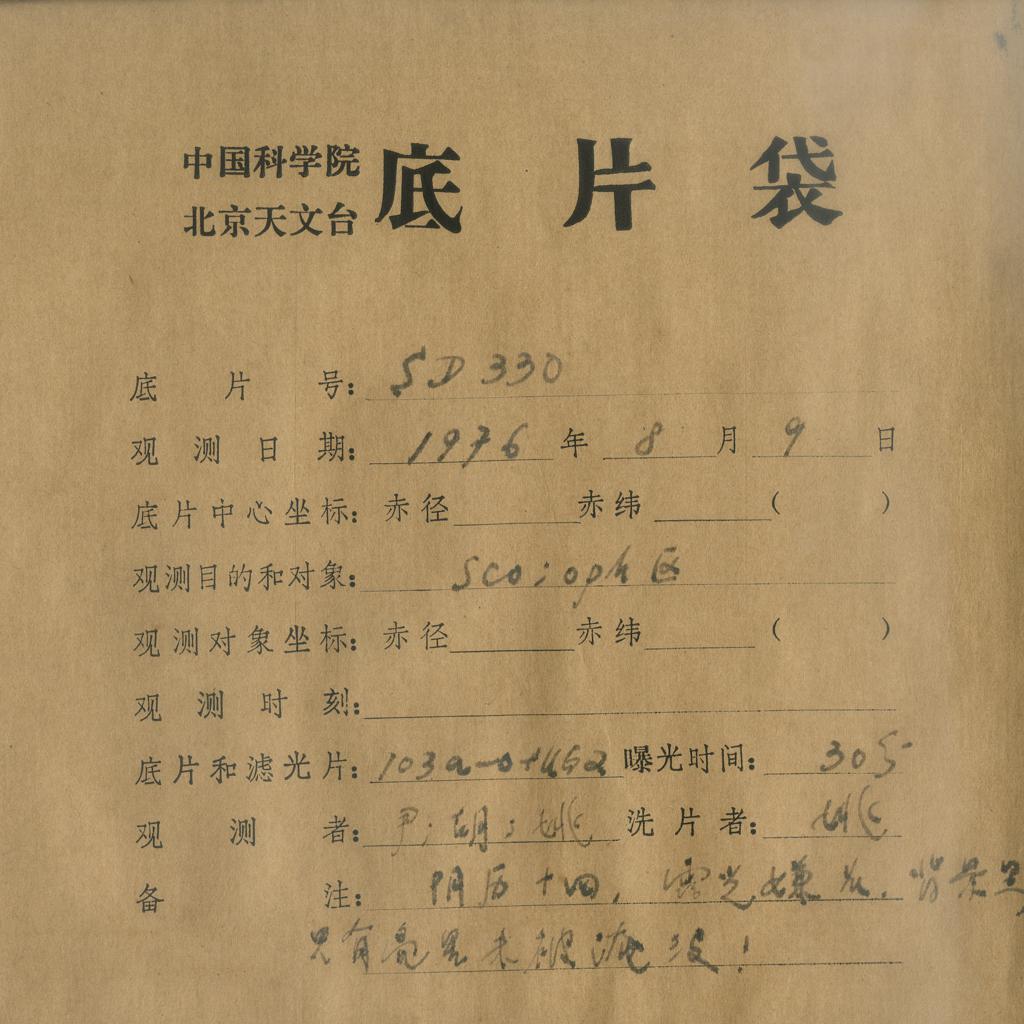 中国科学院
北京天文台
底片袋
底片号：SD 330
观测日期：1976年8月9日
底片中心坐标：赤径 赤纬 ( )
观测目的和对象：Sco; oph 区
观测对象坐标：赤径 赤纬 ( )
观测时刻：
底片和滤光片：103a-0+UG2 曝光时间：30
观测者：尹; 胡; 姚 洗片者：姚
备注：阴历十四, 露光嫌 背景
只有亮星未被淹没!